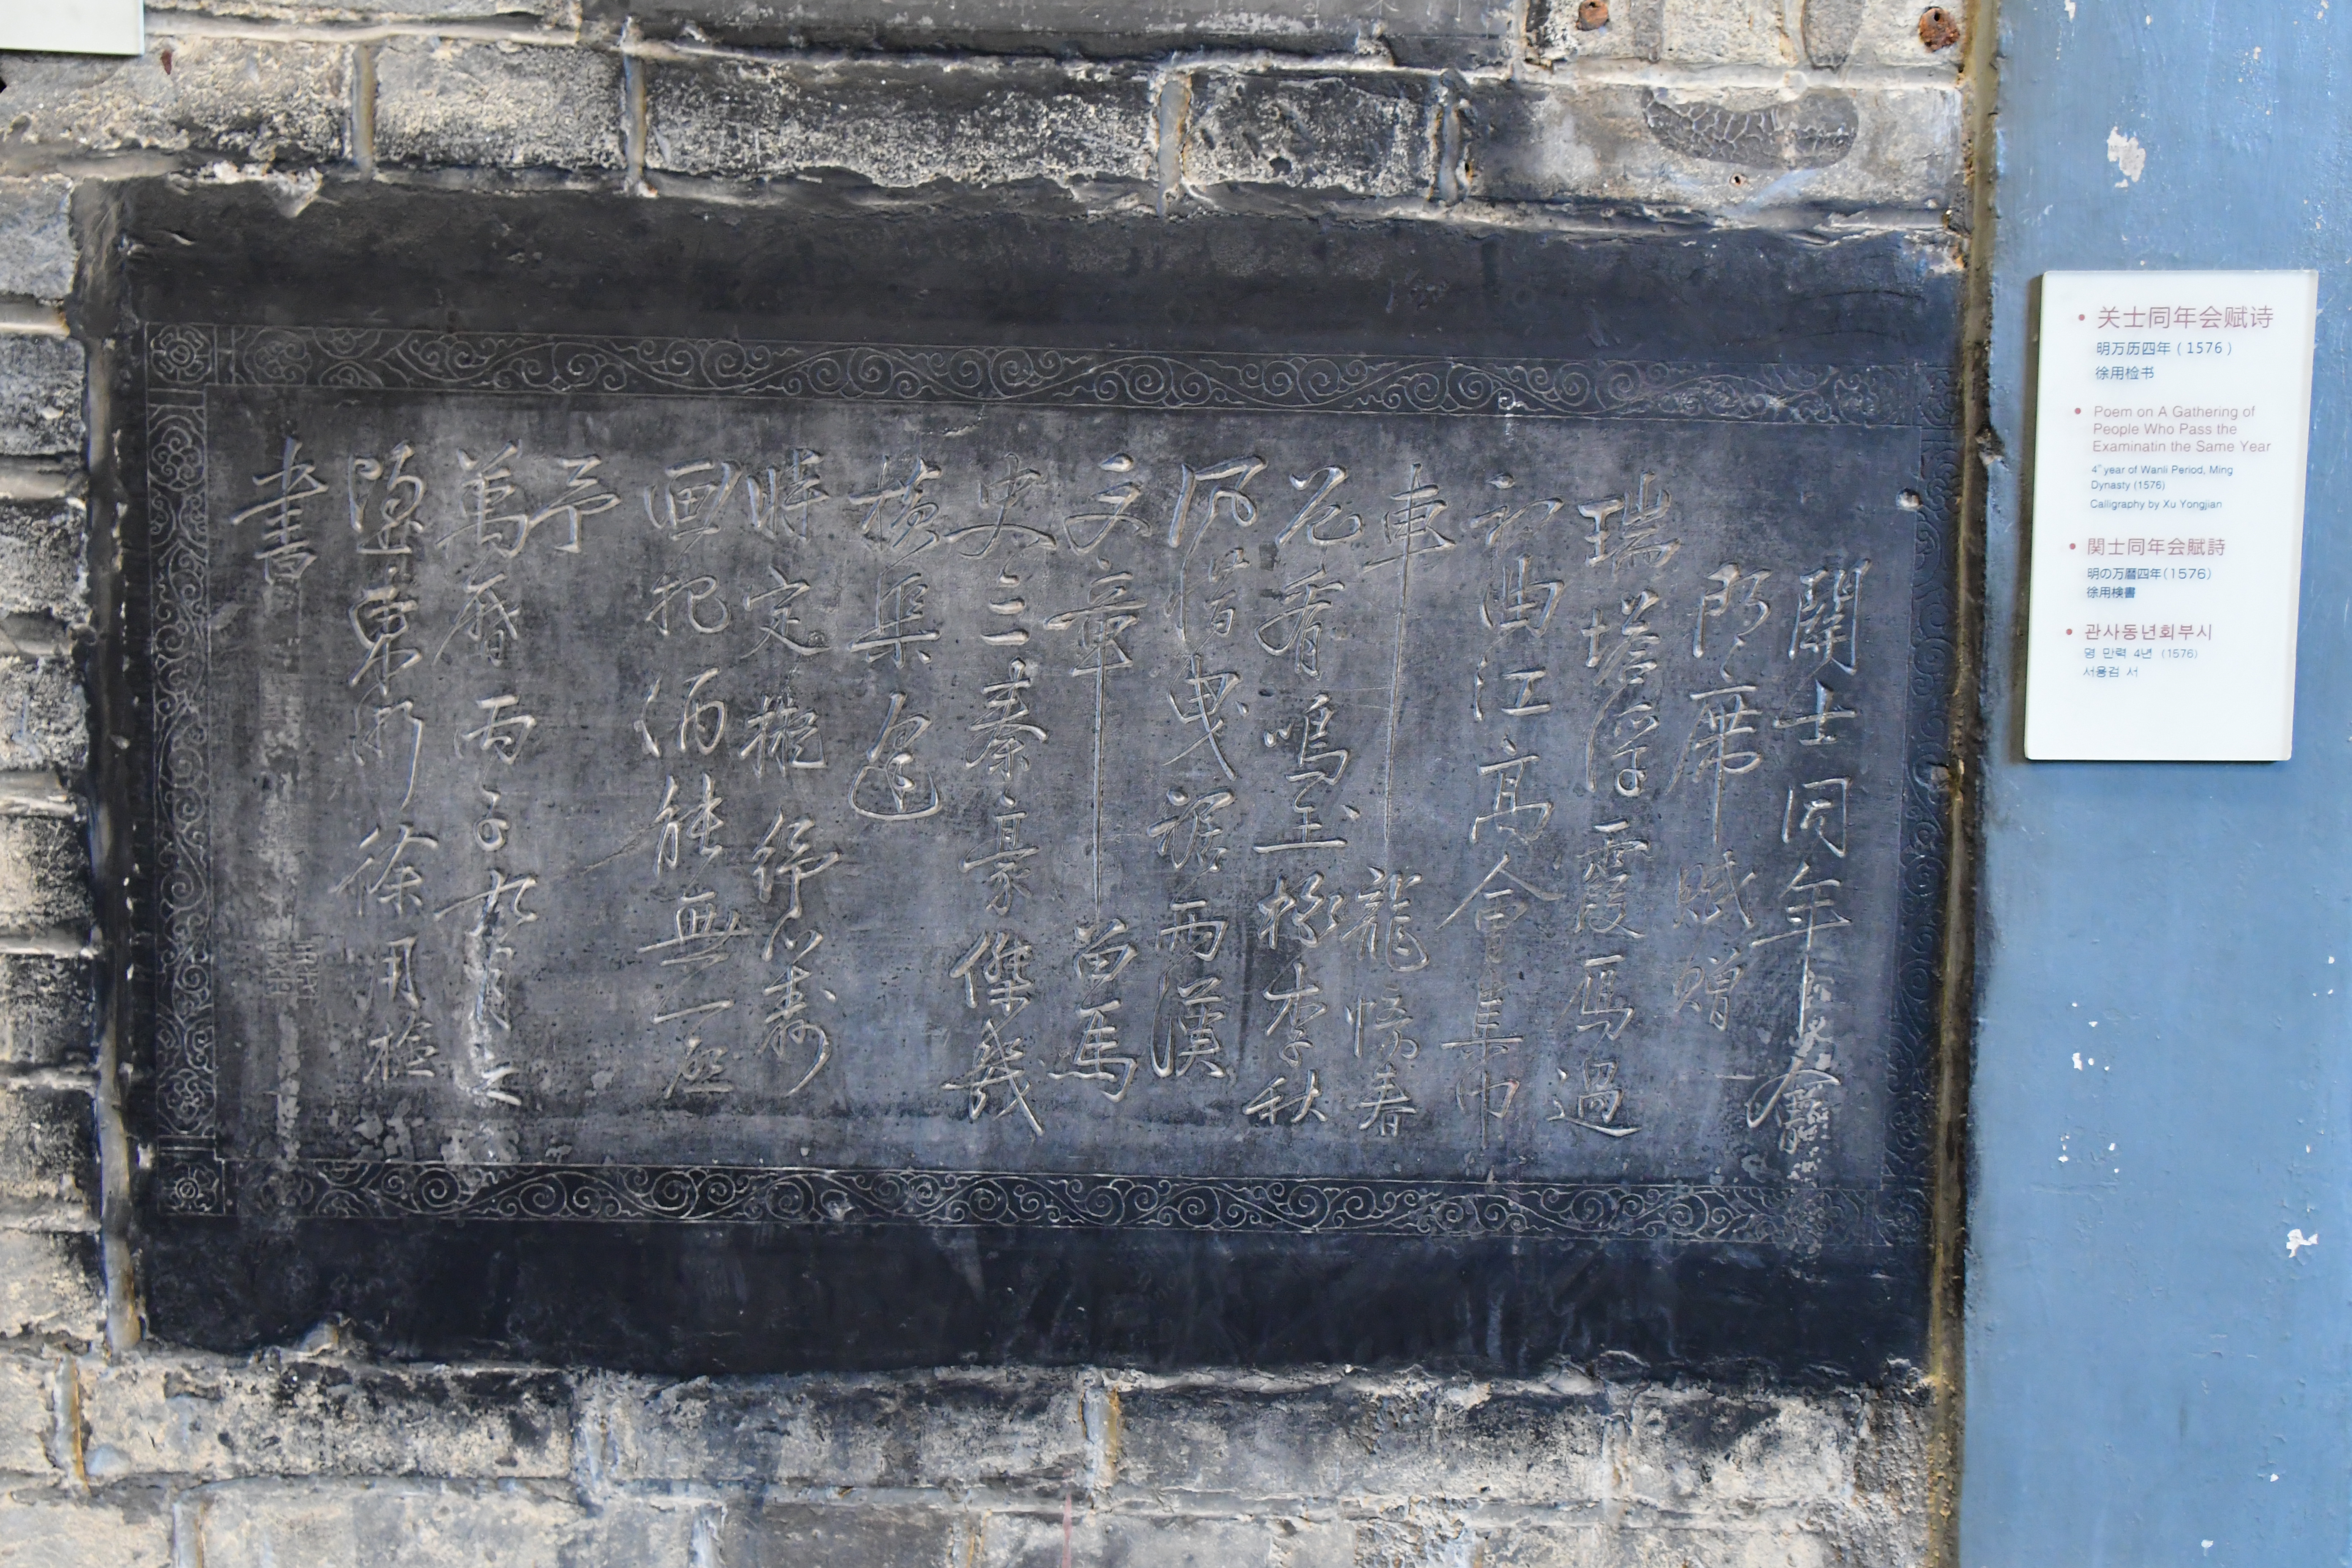 關士同年
即席賦贈
瑞塔浮霞雁過
初曲江高會集巾
車龍憶春
花看鳴玉按李秋
風惜曳裾兩漢
文章留馬
史三秦豪傑幾
橫渠
時定擬
画把酒能無一起
予
萬曆丙子九月
東川徐用檢
書
• 关士同年会赋诗
明万历四年（1576）
徐用检书
• Poem on A Gathering of
People Who Pass the
Examinatin the Same Year
4th year of Wanli Period, Ming
Dynasty (1576)
Calligraphy by Xu Yongjian
• 関士同年会賦詩
明の万暦四年(1576)
徐用検書
• 관사동년회부시
명 만력 4년 (1576)
서용검 서